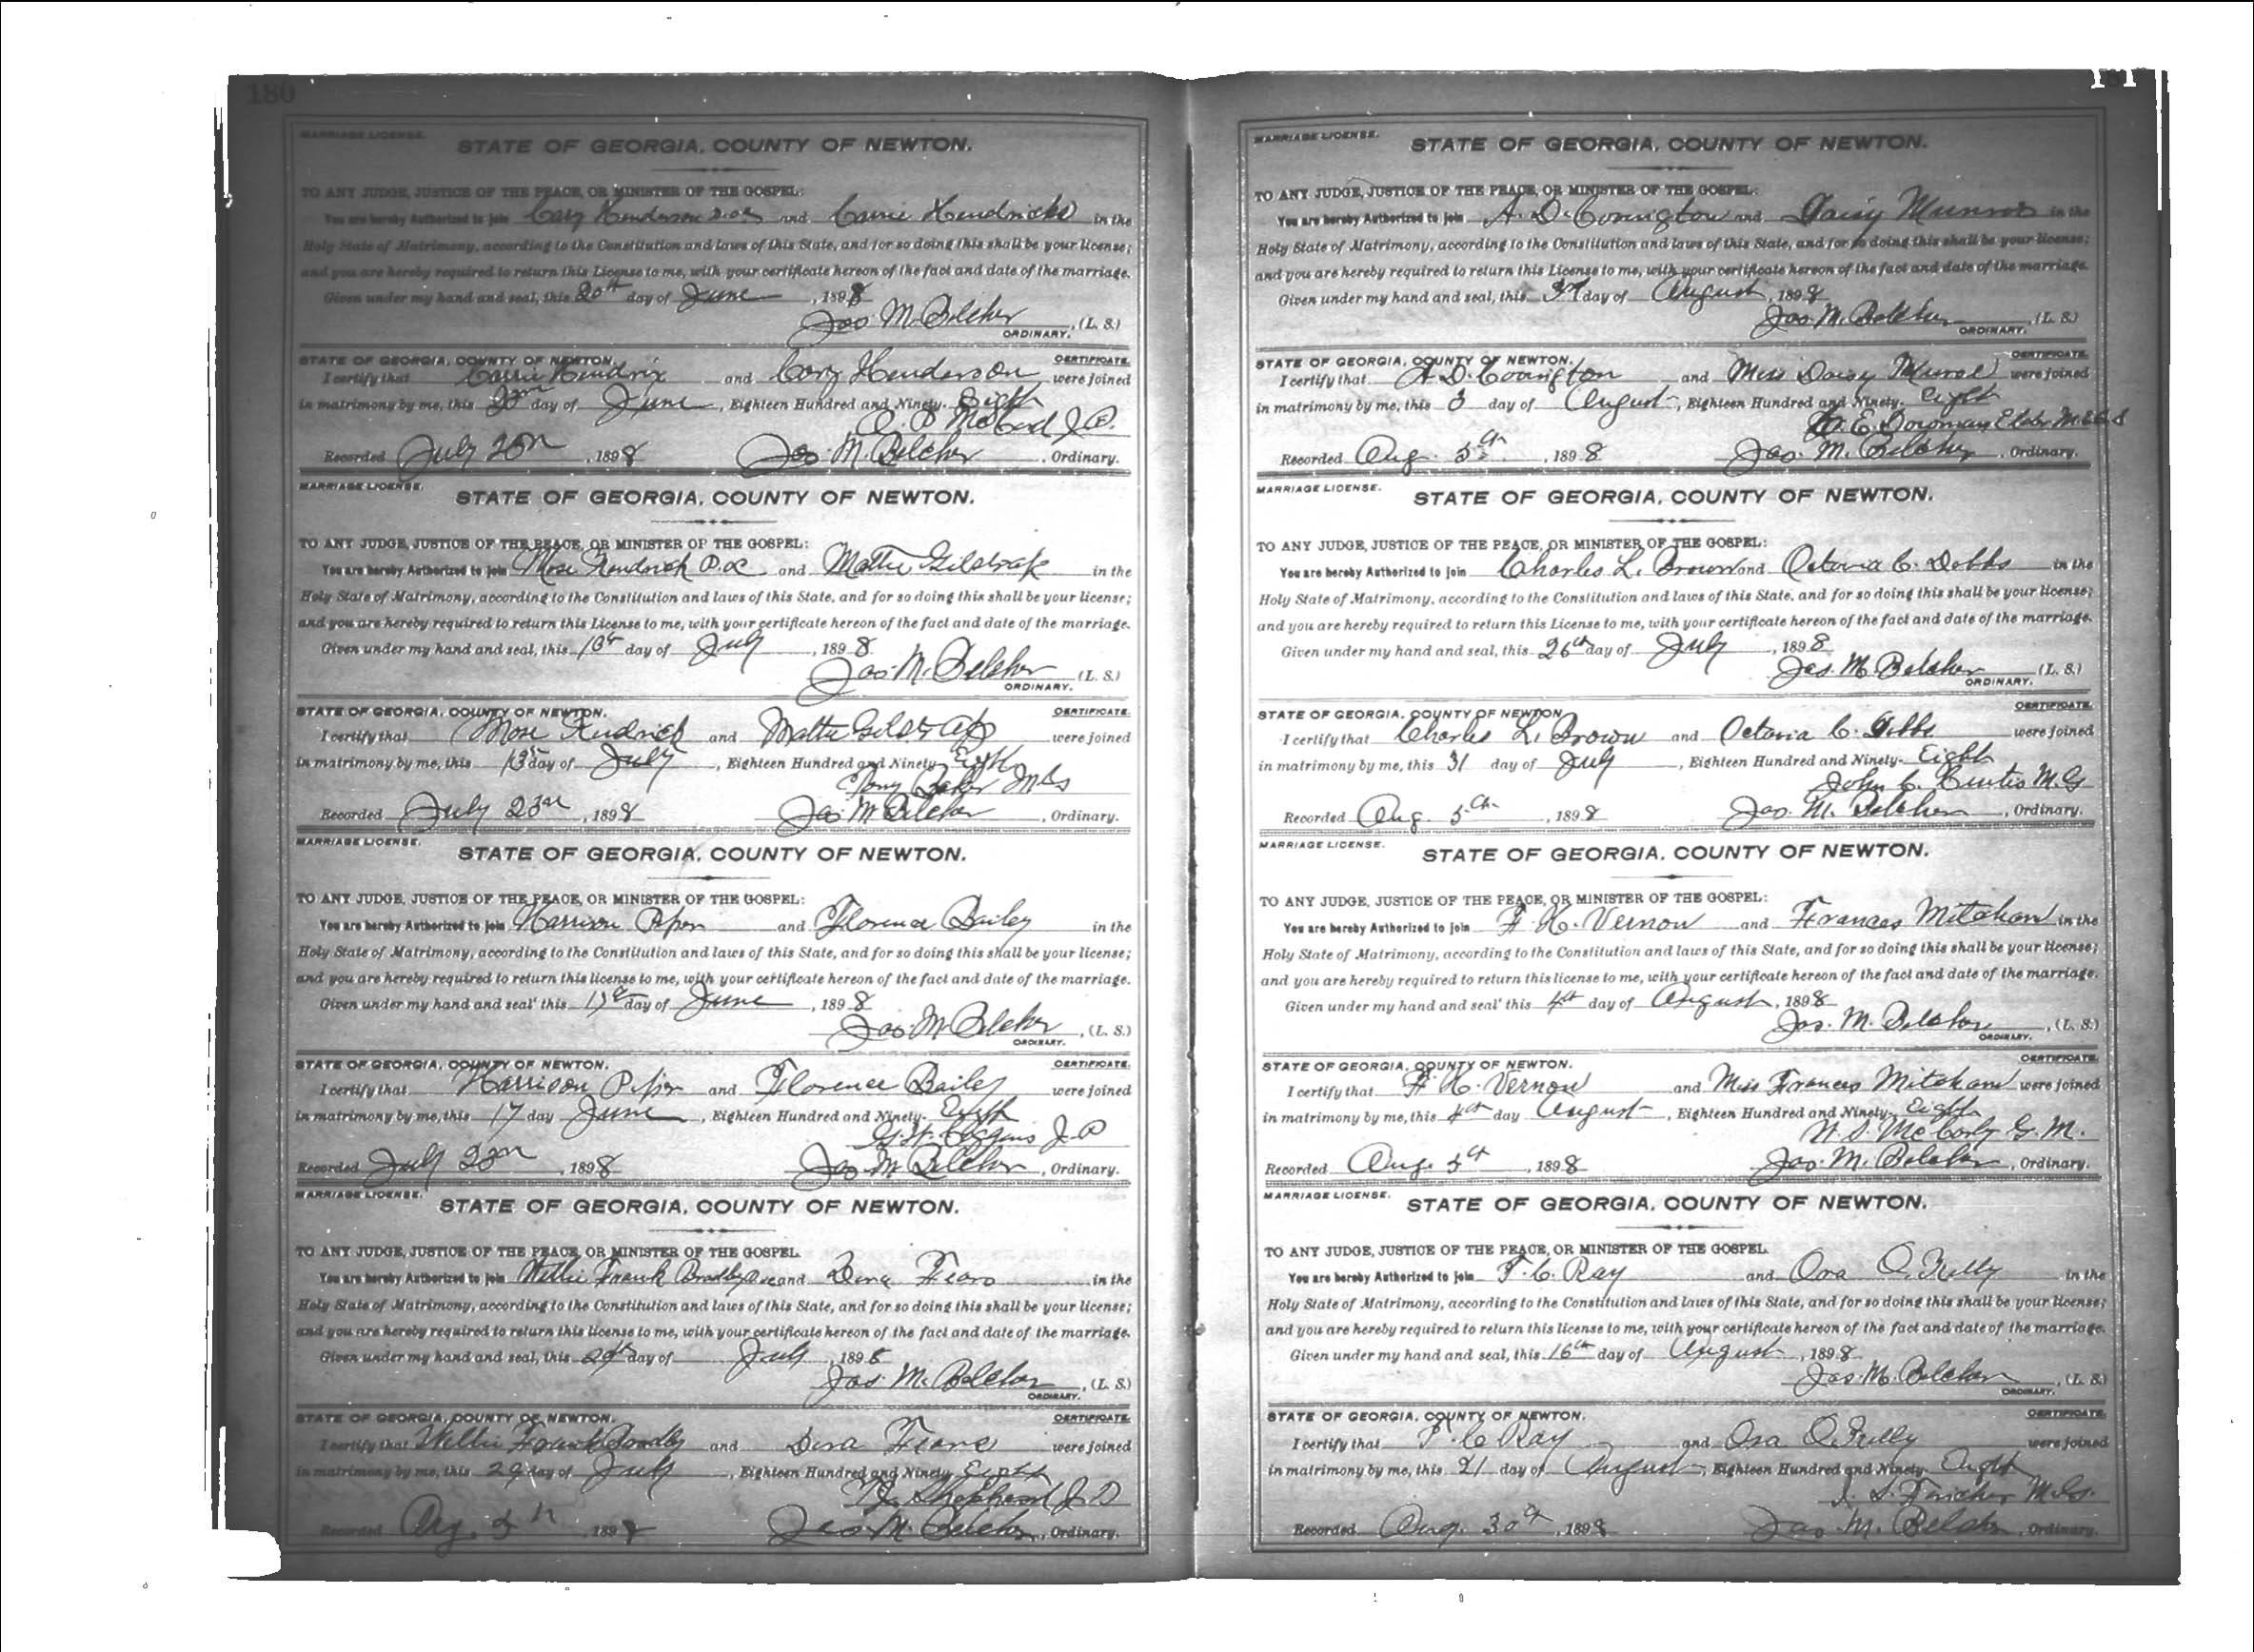 180
MARRIAGE LICENSE.
STATE OF GEORGIA, COUNTY OF NEWTON.
TO ANY JUDGE, JUSTICE OF THE PEACE, OR MINISTER OF THE GOSPEL:
You are hereby Authorized to join Cary Henderson and Carrie Hendricks in the
Holy State of Matrimony, according to the Constitution and laws of this State, and for so doing this shall be your license;
and you are hereby required to return this License to me, with your certificate hereon of the fact and date of the marriage.
Given under my hand and seal, this 20th day of June, 1898
Jas. M. Belcher, (L. S.)
ORDINARY.
STATE OF GEORGIA, COUNTY OF NEWTON. CERTIFICATE.
I certify that Carrie Hendrix and Cary Henderson were joined
in matrimony by me, this day of June, Eighteen Hundred and Ninety-Eight
McCord J.P.
Recorded July 1898 Jas. M. Belcher, Ordinary.
MARRIAGE LICENSE.
STATE OF GEORGIA, COUNTY OF NEWTON.
TO ANY JUDGE, JUSTICE OF THE PEACE, OR MINISTER OF THE GOSPEL:
You are hereby Authorized to join Mose Kendrick P.O.C. and Mattie Gilstrap in the
Holy State of Matrimony, according to the Constitution and laws of this State, and for so doing this shall be your license;
and you are hereby required to return this License to me, with your certificate hereon of the fact and date of the marriage.
Given under my hand and seal, this day of July, 1898
Jas. M. Belcher (L. S.)
ORDINARY.
STATE OF GEORGIA, COUNTY OF NEWTON. CERTIFICATE.
I certify that Mose Kendrick and Mattie Gilstrap were joined
in matrimony by me, this day of July, Eighteen Hundred and Ninety-Eight
Tony Baker M.G.
Recorded July 23rd, 1898 Jas. M. Belcher, Ordinary.
MARRIAGE LICENSE.
STATE OF GEORGIA, COUNTY OF NEWTON.
TO ANY JUDGE, JUSTICE OF THE PEACE, OR MINISTER OF THE GOSPEL:
You are hereby Authorized to join Harrison Piper and Florence Bailey in the
Holy State of Matrimony, according to the Constitution and laws of this State, and for so doing this shall be your license;
and you are hereby required to return this license to me, with your certificate hereon of the fact and date of the marriage.
Given under my hand and seal' this day of June, 1898
Jas. M. Belcher, (L. S.)
ORDINARY.
STATE OF GEORGIA, COUNTY OF NEWTON. CERTIFICATE.
I certify that Harrison Piper and Florence Bailey were joined
in matrimony by me, this 17 day June, Eighteen Hundred and Ninety-Eight
J.P.
Recorded July 23rd, 1898 Jas. M. Belcher, Ordinary.
MARRIAGE LICENSE.
STATE OF GEORGIA, COUNTY OF NEWTON.
TO ANY JUDGE, JUSTICE OF THE PEACE, OR MINISTER OF THE GOSPEL.
You are hereby Authorized to join Willie Frank Bradley and Dena Fears in the
Holy State of Matrimony, according to the Constitution and laws of this State, and for so doing this shall be your license;
and you are hereby required to return this license to me, with your certificate hereon of the fact and date of the marriage.
Given under my hand and seal, this 29th day of July, 1898
Jas. M. Belcher, (L. S.)
ORDINARY.
STATE OF GEORGIA, COUNTY OF NEWTON. CERTIFICATE.
I certify that Willie Frank Bradley and Dena Fears were joined
in matrimony by me, this 29 day of July, Eighteen Hundred and Ninety-Eight
Shepherd J.P.
Recorded Aug. 5th, 1898 Jas. M. Belcher, Ordinary.
181
MARRIAGE LICENSE.
STATE OF GEORGIA, COUNTY OF NEWTON.
TO ANY JUDGE, JUSTICE OF THE PEACE, OR MINISTER OF THE GOSPEL:
You are hereby Authorized to join A. D. Covington and Daisy in the
Holy State of Matrimony, according to the Constitution and laws of this State, and for so doing this shall be your license;
and you are hereby required to return this License to me, with your certificate hereon of the fact and date of the marriage.
Given under my hand and seal, this 3rd day of August, 1898
Jas. M. Belcher, (L. S.)
ORDINARY.
STATE OF GEORGIA, COUNTY OF NEWTON. CERTIFICATE.
I certify that A. D. Covington and Miss Daisy were joined
in matrimony by me, this 3 day of August, Eighteen Hundred and Ninety-Eight
E. Dowman Elder
Recorded Aug. 5th, 1898 Jas. M. Belcher, Ordinary.
MARRIAGE LICENSE.
STATE OF GEORGIA, COUNTY OF NEWTON.
TO ANY JUDGE, JUSTICE OF THE PEACE, OR MINISTER OF THE GOSPEL:
You are hereby Authorized to join Charles L. Brown and Octavia C. Dobbs in the
Holy State of Matrimony, according to the Constitution and laws of this State, and for so doing this shall be your license;
and you are hereby required to return this License to me, with your certificate hereon of the fact and date of the marriage.
Given under my hand and seal, this 26th day of July, 1898
Jas. M. Belcher (L. S.)
ORDINARY.
STATE OF GEORGIA, COUNTY OF NEWTON. CERTIFICATE.
I certify that Charles L. Brown and Octavia C. Dobbs were joined
in matrimony by me, this 31 day of July, Eighteen Hundred and Ninety-Eight
John C. Curtis M.G.
Recorded Aug. 5th, 1898 Jas. M. Belcher, Ordinary.
MARRIAGE LICENSE.
STATE OF GEORGIA, COUNTY OF NEWTON.
TO ANY JUDGE, JUSTICE OF THE PEACE, OR MINISTER OF THE GOSPEL:
You are hereby Authorized to join F. H. Vernon and Frances Mitcham in the
Holy State of Matrimony, according to the Constitution and laws of this State, and for so doing this shall be your license;
and you are hereby required to return this license to me, with your certificate hereon of the fact and date of the marriage.
Given under my hand and seal' this 4th day of August, 1898
Jas. M. Belcher, (L. S.)
ORDINARY.
STATE OF GEORGIA, COUNTY OF NEWTON. CERTIFICATE.
I certify that F. H. Vernon and Miss Frances Mitcham were joined
in matrimony by me, this 4th day August, Eighteen Hundred and Ninety-Eight
G.M.
Recorded Aug. 5th, 1898 Jas. M. Belcher, Ordinary.
MARRIAGE LICENSE.
STATE OF GEORGIA, COUNTY OF NEWTON.
TO ANY JUDGE, JUSTICE OF THE PEACE, OR MINISTER OF THE GOSPEL.
You are hereby Authorized to join T. C. Ray and Ora O'Kelly in the
Holy State of Matrimony, according to the Constitution and laws of this State, and for so doing this shall be your license;
and you are hereby required to return this license to me, with your certificate hereon of the fact and date of the marriage.
Given under my hand and seal, this 16th day of August, 1898
Jas. M. Belcher, (L. S.)
ORDINARY.
STATE OF GEORGIA, COUNTY OF NEWTON. CERTIFICATE.
I certify that T. C. Ray and Ora O'Kelly were joined
in matrimony by me, this 21 day of August, Eighteen Hundred and Ninety-Eight
M.G.
Recorded Aug. 30th, 1898 Jas. M. Belcher, Ordinary.